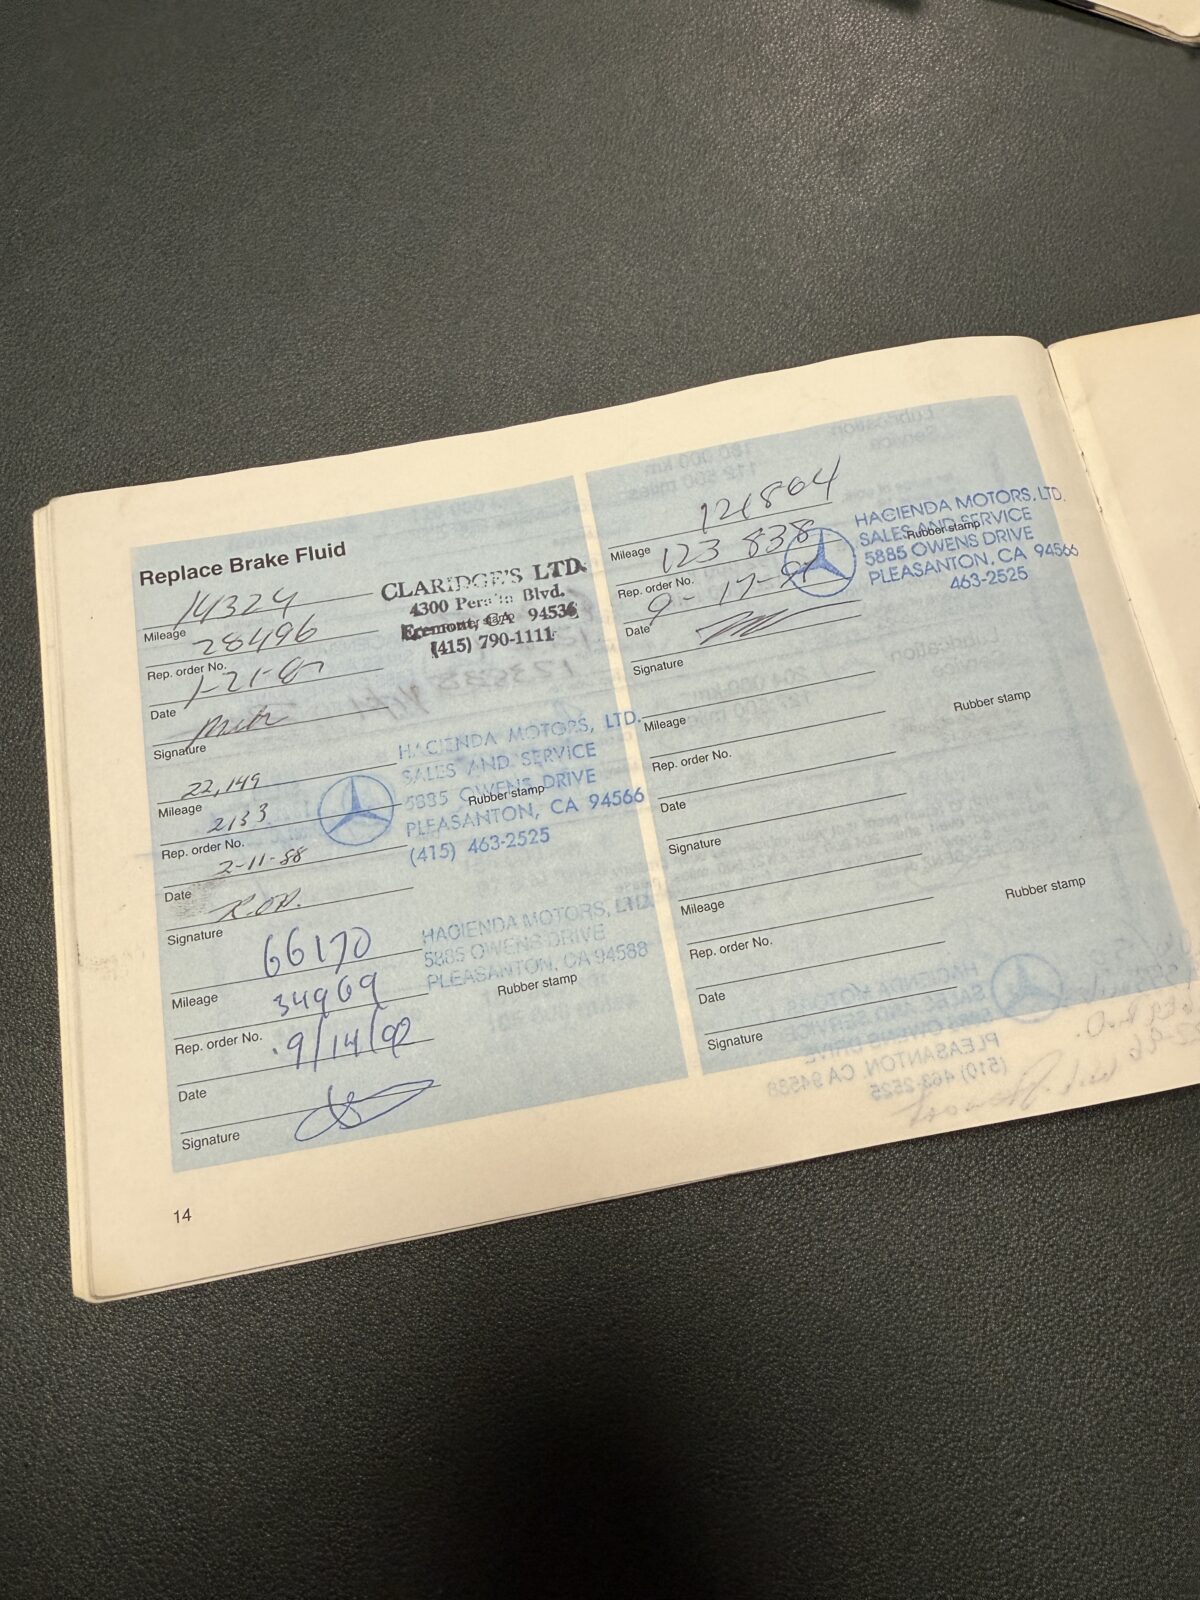 Replace Brake Fluid
14324
Mileage
28496
Rep. order No.
1-21-87
Date
Signature
CLARIDGE'S LTD.
4300 Peralta Blvd.
Fremont, CA 94536
(415) 790-1111
22,149
Mileage
2133
Rep. order No.
2-11-88
Date
Signature
HACIENDA MOTORS, LTD.
SALES AND SERVICE
5885 OWENS DRIVE
Rubber stamp
PLEASANTON, CA 94566
(415) 463-2525
66170
Mileage
34969
Rep. order No.
9/14/92
Date
Signature
HACIENDA MOTORS, LTD.
5885 OWENS DRIVE
PLEASANTON, CA 94588
Rubber stamp
121804
Mileage
123838
Rep. order No.
9-17-
Date
Signature
HACIENDA MOTORS, LTD.
SALES AND SERVICE
Rubber stamp
5885 OWENS DRIVE
PLEASANTON, CA 94566
463-2525
Mileage
Rubber stamp
Rep. order No.
Date
Signature
Mileage
Rubber stamp
Rep. order No.
Date
Signature
14